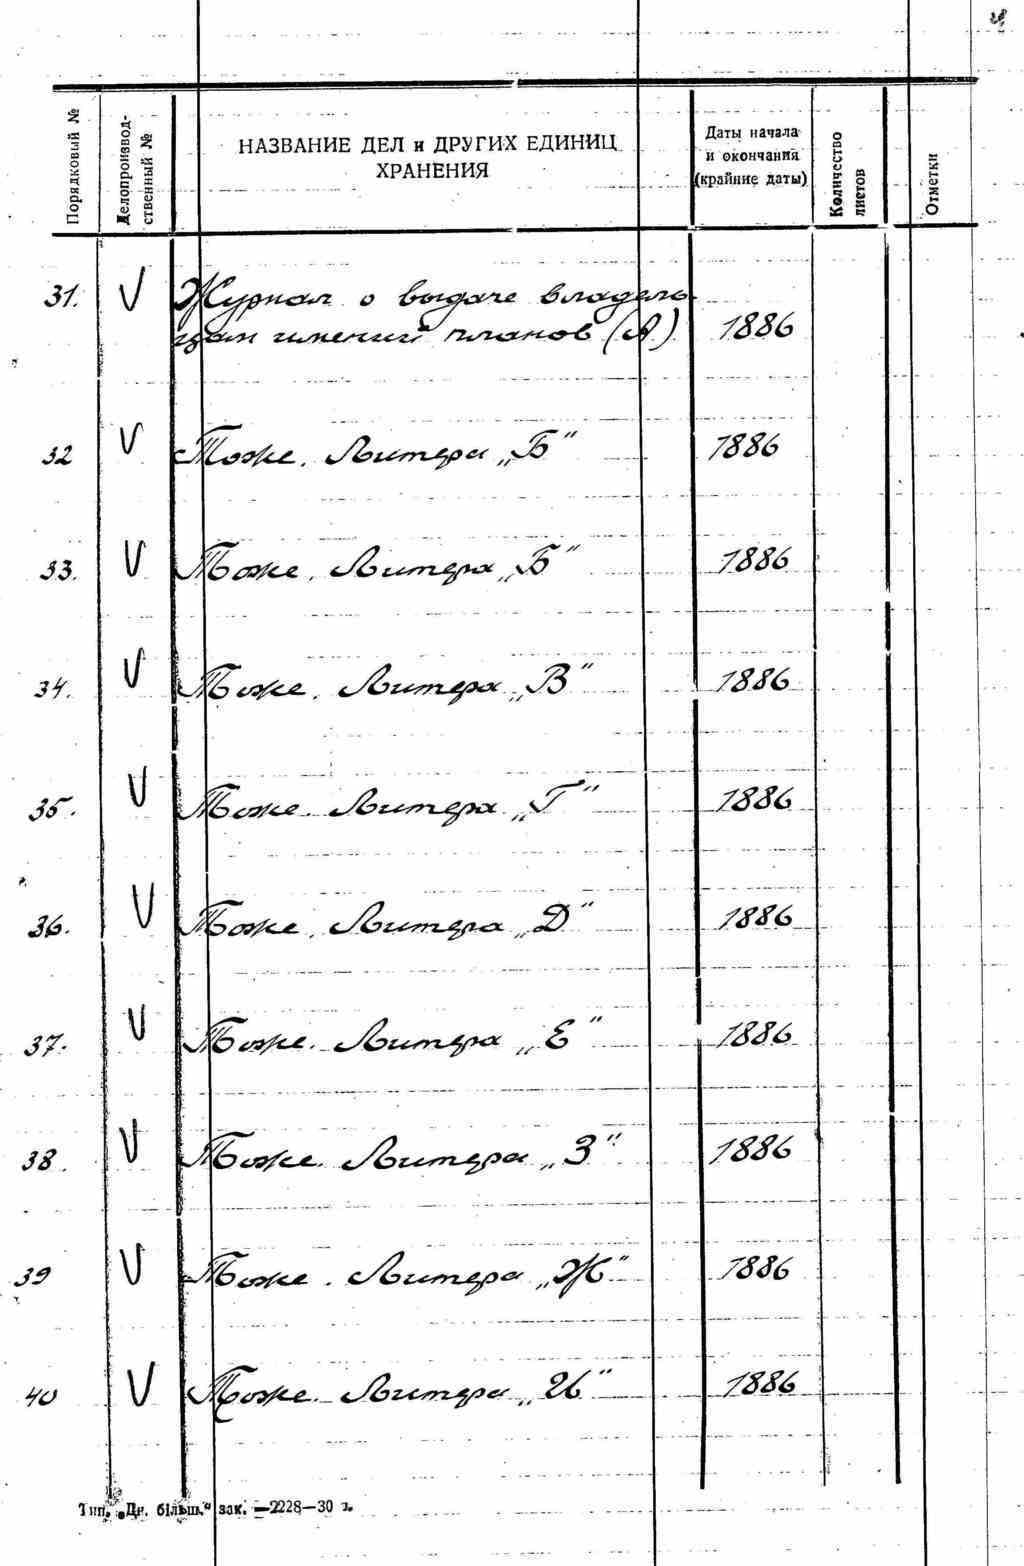 Порядковый №
Делопроизвод-
ственный №
НАЗВАНИЕ ДЕЛ и ДРУГИХ ЕДИНИЦ
ХРАНЕНИЯ
Даты начала
и окончания
(крайние даты)
Количество
листов
Отметки
31. V Журнал о выдаче владель-
цам имений планов (А) 1886
32 V Тоже. Литера „Б" 1886
33. V Тоже. Литера „Б" 1886
34. V Тоже. Литера „В" 1886
35. V Тоже. Литера „Г" 1886
36. V Тоже. Литера „Д" 1886
37. V Тоже. Литера „Е" 1886
38. V Тоже. Литера „З" 1886
39 V Тоже. Литера „Ж" 1886
40 V Тоже. Литера „И" 1886
Тип. „Дн. більш." зак. —2228—30